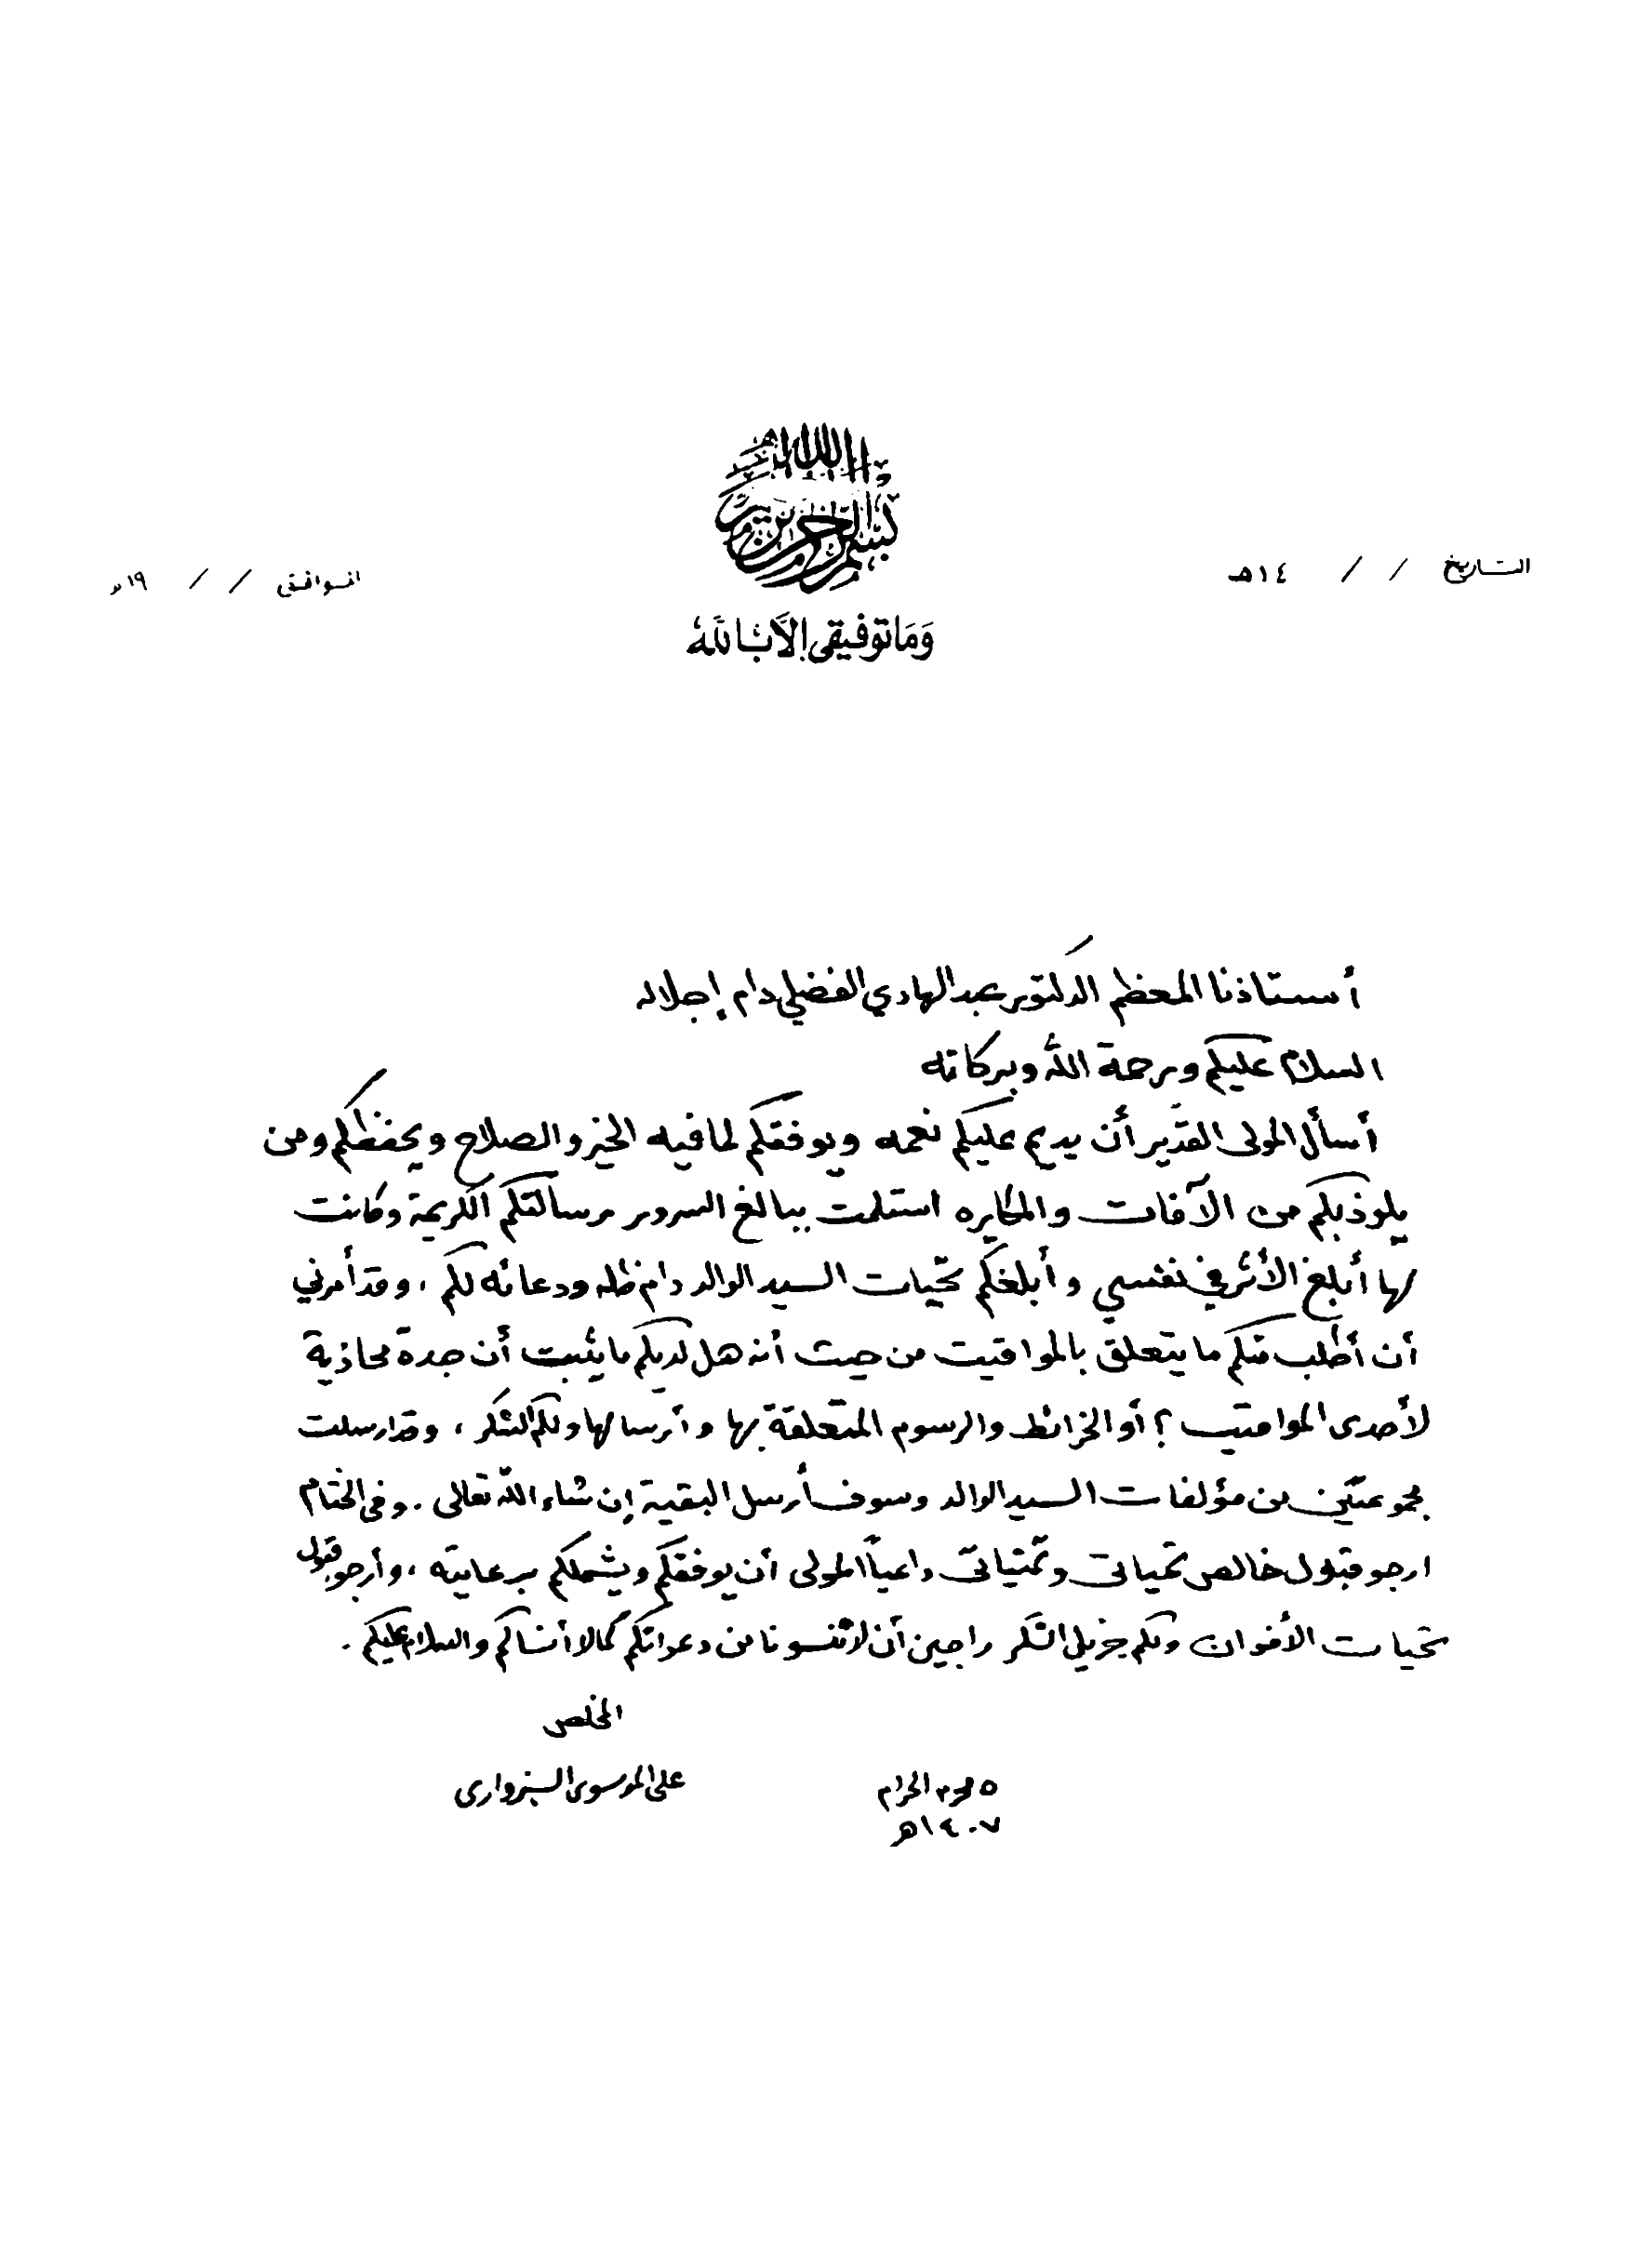 بسم الله الرحمن الرحيم
وَمَا تَوفيقي إلاَّ بالله
التاريخ / / ١٤هـ
الموافق / / ١٩م
أستاذنا المعظم الدكتور عبد الهادي الفضلي دام إجلاله
السلام عليكم ورحمة الله وبركاته
أسأل المولى القدير أن يديم عليكم نعمه ويوفقكم لما فيه الخير والصلاح ويحفظكم ومن
يلوذ بكم من الآفات والمكايره استلمت ببالغ السرور رسالتكم الكريمة وكانت
لها أبلغ الأثر في نفسي وأبلغكم تحيّات السيد الوالد دام ظله ودعائه لكم ، وقد أمرني
أن أطلب منكم ما يتعلق بالمواقيت من حيث أنه هل لديكم ما يثبت أن جدة محاذية
لأحدى المواقيت ؟ أو الخرائط والرسوم المتعلقة بها وأرسالها ولكم الشكر ، وقد ارسلت
مجموعتين من مؤلفات السيد الوالد وسوف أرسل البقية إن شاء الله تعالى . وفي الختام
ارجو قبول خالص تحياتي وتمنياتي داعياً المولى أن يوفقكم ويشملكم برعايته ، وأرجو قبول
تحيات الأخوان ولكم جزيل الشكر راجين أن لا تنسونا من دعواتكم كما لا أنساكم والسلام عليكم .
المخلص
علي الموسوي السبزواري
٥ محرم الحرام
١٤٠٧هـ